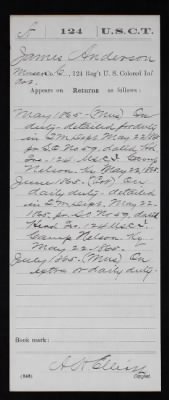 A | 124 | U.S.C.T.
James Anderson
Co. G, 124 Reg't U. S. Colored Inf
Appears on Returns as follows:
May 1865. (Mus) On
duty, detailed for duty
in Q M Dept. May 22/65
per S.O. No 59, dated Hd
Qrs. 124 U.S.C.I. Camp
Nelson Ky May 22, 1865.
June 1865. On
daily duty, detailed
in Q M Dept. May 22
1865. per S.O. No 59, dated
Head Qrs. 124 U.S.C.I.
Camp Nelson Ky
May 22-1865.
July 1865. (Mus) On
extra or daily duty.
Book mark:
(546)
Copyist.